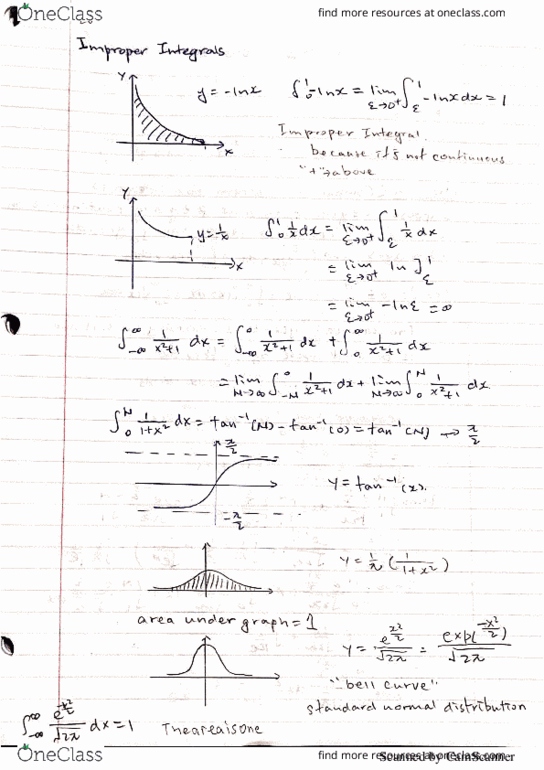 OneClass
find more resources at oneclass.com
Improper Integrals
Y
y = -lnx
∫₀¹ -lnx = lim ε→0⁺ ∫_ε¹ -lnxdx = 1
Improper Integral
because it's not continuous
"+" → above
x
Y
y=1/x
∫₀¹ 1/x dx = lim ε→0⁺ ∫_ε¹ 1/x dx
x
= lim ε→0⁺ ln ]_ε¹
= lim ε→0⁺ -lnε = ∞
∫_-∞^∞ 1/(x²+1) dx = ∫_-∞^0 1/(x²+1) dx + ∫₀^∞ 1/(x²+1) dx
= lim N→∞ ∫_-N^0 1/(x²+1) dx + lim N→∞ ∫₀^N 1/(x²+1) dx
∫₀^N 1/(1+x²) dx = tan⁻¹(N) - tan⁻¹(0) = tan⁻¹(N) → π/2
π/2
Y = tan⁻¹(x).
-π/2
Y = 1/π (1/(1+x²))
area under graph = 1
Y = e^(x²/2)/√2π = exp(-x²/2)/√2π
"bell curve"
standard normal distribution
∫_-∞^∞ e^(-x²/2)/√2π dx = 1
The area is one
OneClass
find more resources at oneclass.com
Scanned by CamScanner